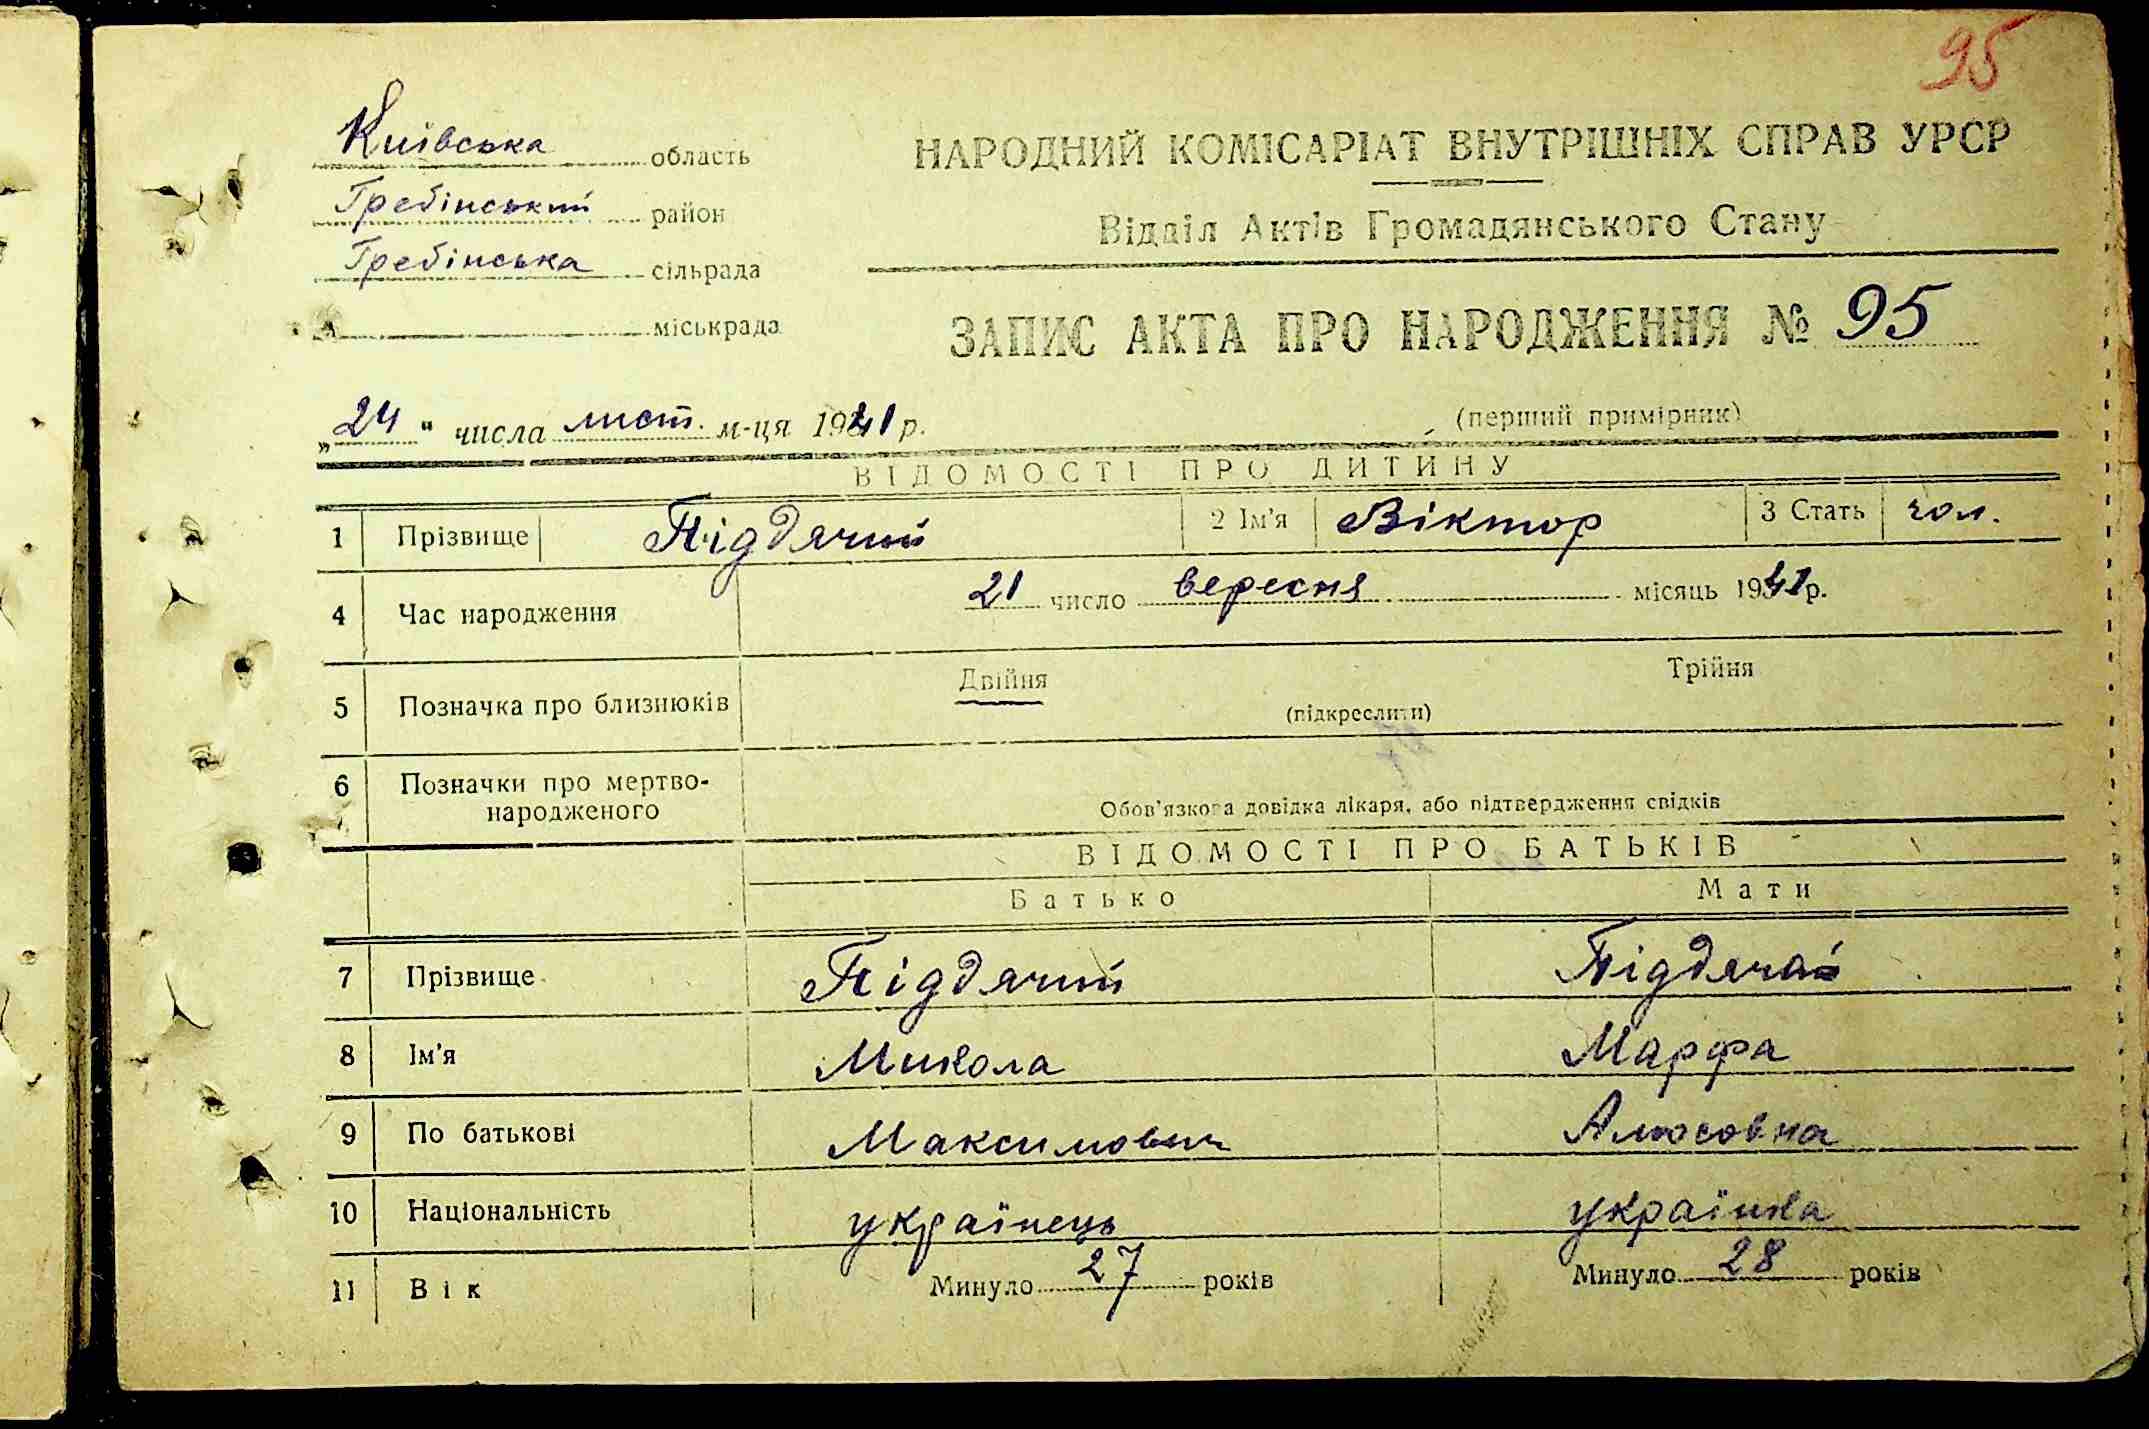 95
Київська область
Гребінський район
Гребінська сільрада
міськрада
НАРОДНИЙ КОМІСАРІАТ ВНУТРІШНІХ СПРАВ УРСР
Відділ Актів Громадянського Стану
ЗАПИС АКТА ПРО НАРОДЖЕННЯ № 95
„24“ числа лист. м-ця 1941 р.
(перший примірник)
ВІДОМОСТІ ПРО ДИТИНУ
1 Прізвище Піддячий 2 Ім'я Віктор 3 Стать чол.
4 Час народження 21 число вересня місяць 1941 р.
5 Позначка про близнюків Двійня (підкреслити) Трійня
6 Позначки про мертво-
народженого Обов'язкова довідка лікаря, або підтвердження свідків
ВІДОМОСТІ ПРО БАТЬКІВ
Батько Мати
7 Прізвище Піддячий Піддячая
8 Ім'я Микола Марфа
9 По батькові Максимович
10 Національність українець українка
11 Вік Минуло 27 років Минуло 28 років